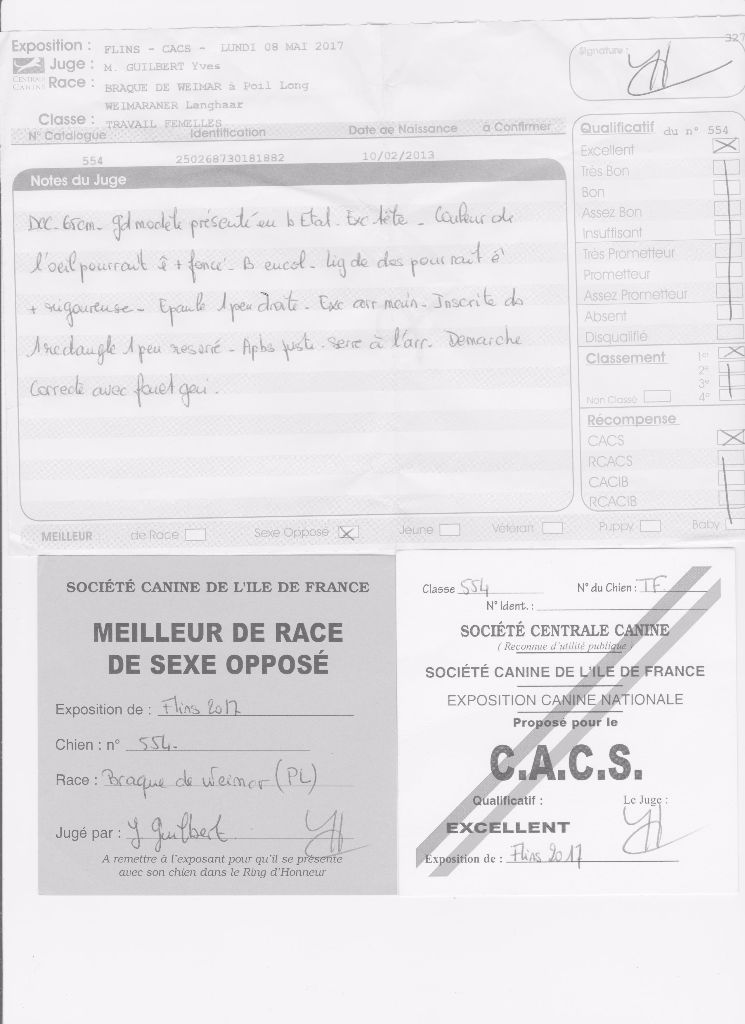 327
Exposition : FLINS - CACS - LUNDI 08 MAI 2017
Signature :
CENTRALE CANINE
Juge : M. GUILBERT Yves
Race : BRAQUE DE WEIMAR à Poil Long
WEIMARANER Langhaar
Classe : TRAVAIL FEMELLES
N° Catalogue Identification Date de Naissance à Confirmer
554 250268730181882 10/02/2013
Notes du Juge
65cm - gd modèle présenté en b Etat. Exc tête - Couleur de
l'oeil pourrait ê + foncé - B encol - lig de dos pourrait ê
+ rigoureuse - Epaule 1 peu droite - Exc arr main - Inscrite ds
1 rectangle 1 peu resserré - Apbs juste - serré à l'arr. Démarche
Correcte avec fouet gai.
Qualificatif du n° 554
Excellent
Très Bon
Bon
Assez Bon
Insuffisant
Très Prometteur
Prometteur
Assez Prometteur
Absent
Disqualifié
Classement 1er
2e
3e
Non Classé 4e
Récompense
CACS
RCACS
CACIB
RCACIB
MEILLEUR : de Race Sexe Opposé Jeune Vétéran Puppy Baby
SOCIÉTÉ CANINE DE L'ILE DE FRANCE
MEILLEUR DE RACE
DE SEXE OPPOSÉ
Exposition de : Flins 2017
Chien : n° 554.
Race : Braque de Weimar (PL)
Jugé par : Y Guilbert
A remettre à l'exposant pour qu'il se présente
avec son chien dans le Ring d'Honneur
Classe 554 N° du Chien : TF
N° Ident. :
SOCIÉTÉ CENTRALE CANINE
( Reconnue d'utilité publique
SOCIÉTÉ CANINE DE L'ILE DE FRANCE
EXPOSITION CANINE NATIONALE
Proposé pour le
C.A.C.S.
Qualificatif : Le Juge :
EXCELLENT
Exposition de : Flins 2017